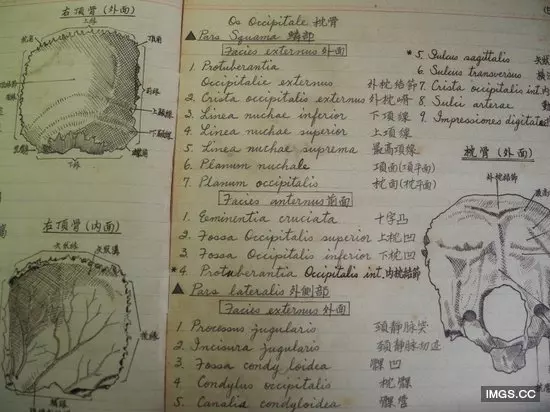 右頂骨(外面)
上緣
頂角
前緣
下緣
右頂骨(内面)
矢狀緣
矢狀溝
Os Occipitale 枕骨
▲ Pars Squama 鱗部
Facies externus 外面
1. Protuberantia
Occipitalie externus 外枕結節
2. Crista occipitalis externus 外枕嵴
3. Linea nuchae inferior 下頂線
4. Linea nuchae superior 上頂線
5. Linea nuchae suprema 最高頂線
6. Planum nuchale 項面(項平面)
7. Planum occipitalis 枕面(枕平面)
Facies anternus 前面
1. Eeminentia cruciata 十字凸
2. Fossa Occipitalis superior 上枕凹
3. Fossa Occipitalis inferior 下枕凹
*4. Protuberantia Occipitalis int. 内枕結節
▲ Pars lateralis 外側部
Facies externus 外面
1. Processus jugularis 頸静脉突
2. Incisura jugularis 頸静脉切迹
3. Fossa condyloidea 髁凹
4. Condylus occipitalis 枕髁
5. Canalia condyloidea 髁管
*5. Sulcus sagittalis
6. Sulcus transversus
7. Crista occipitalis int.
8. Sulci arterae
9. Impressiones digitatae
枕骨(外面)
外枕結節
IMGS.CC